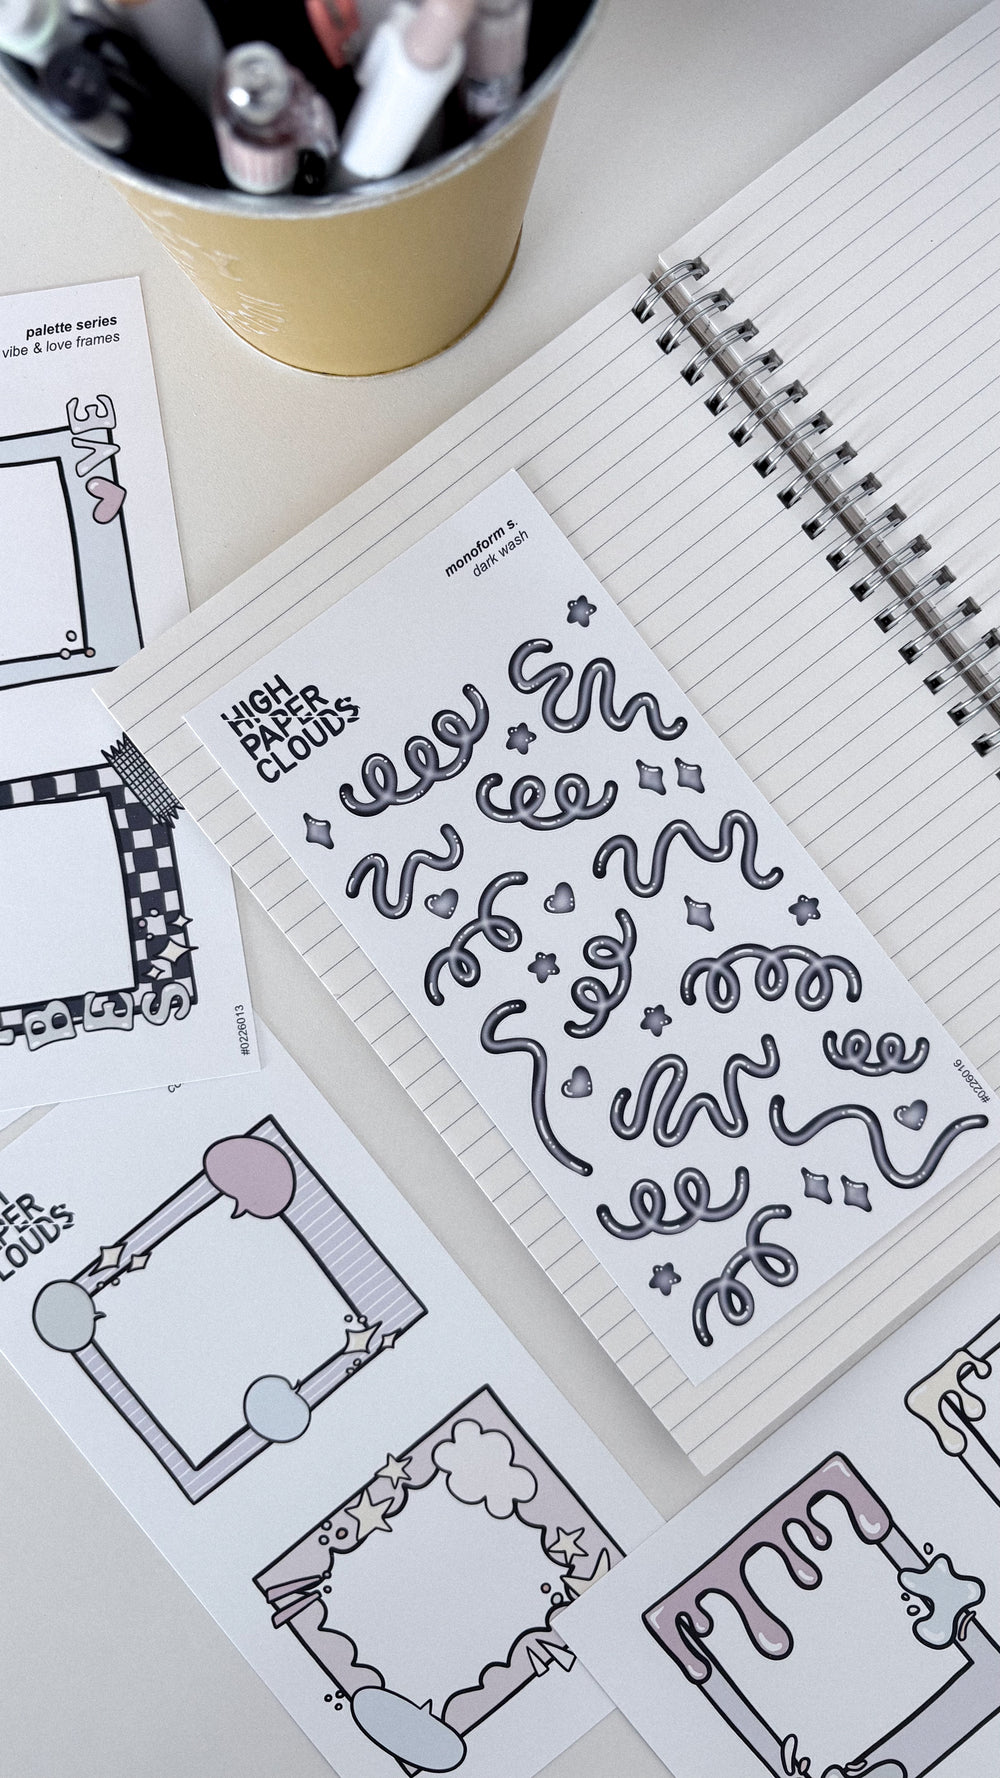 palette series
vibe & love frames
VE
BES
#0226013
monoform s.
dark wash
HIGH
PAPER
CLOUDS
#0226016
PER
LOUDS